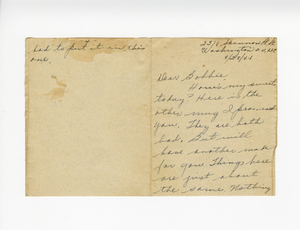 had to put it in this
one.
Washington
Dear Bobbie,
How's my sweet
today? Here is the
other ring I promised
you. They are both
bad. But will
have another made
for you. Things here
are just about
the same. Nothing